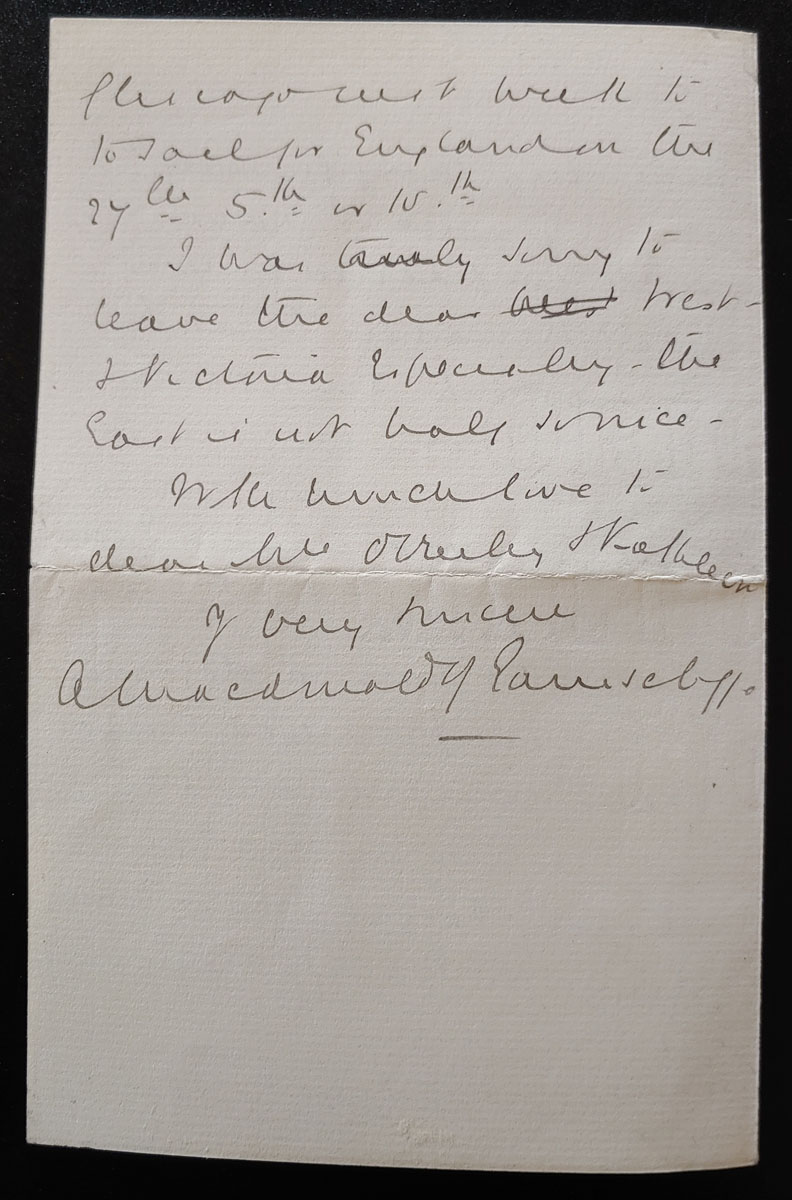 Chicago next week to
to sail for England on the
27th 5.th or 10.th
I was truly sorry to
leave the dear West -
& Victoria Especially - the
East is not half so nice -
With much love to
dear Mrs O'Reilly & Kathleen
Yr very sincere
A Macdonald of Earnscliffe.